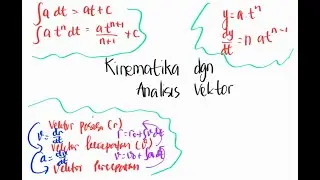 ∫a dt = at + C
∫a tⁿ dt = a tⁿ⁺¹/n+1 + C
y = a tⁿ
dy/dt = n a tⁿ⁻¹
Kinematika dgn
Analisis Vektor
Vektor posisi (r)
v = dr/dt
r = r₀ + ∫v dt
Vektor kecepatan (v)
a = dv/dt
v = v₀ + ∫a dt
Vektor percepatan